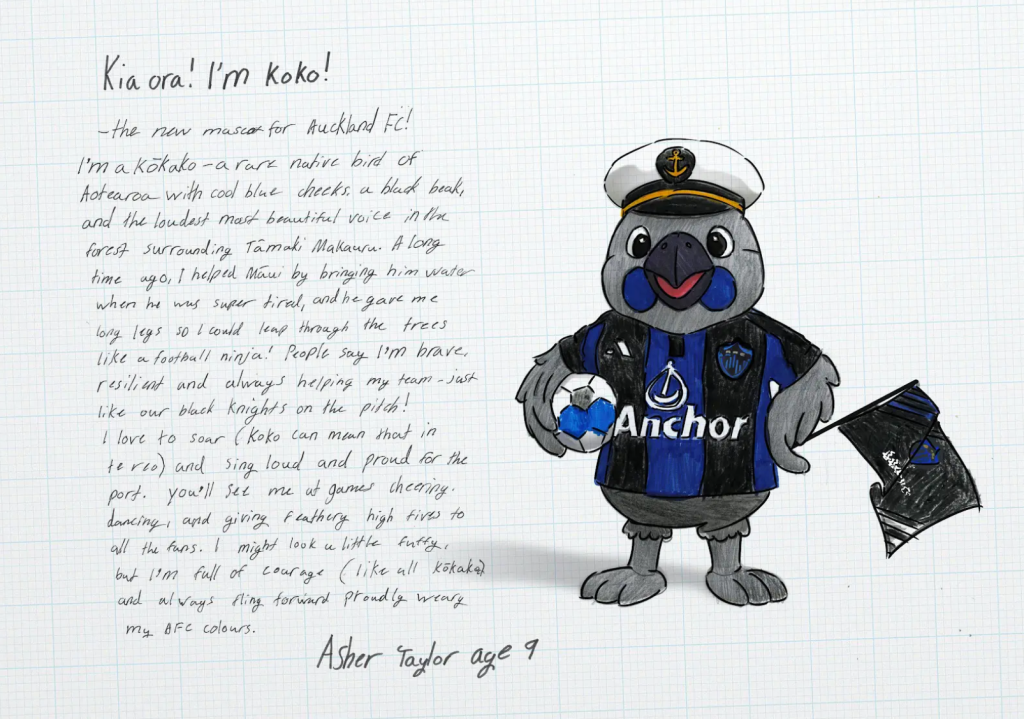 Kia ora! I'm Koko!
- the new mascot for Auckland FC!
I'm a kōkako - a rare native bird of
Aotearoa with cool blue cheeks, a black beak,
and the loudest most beautiful voice in the
forest surrounding Tāmaki Makauru. A long
time ago, I helped Māui by bringing him water
when he was super tired, and he gave me
long legs so I could leap through the trees
like a football ninja! People say I'm brave,
resilient and always helping my team - just
like our black knights on the pitch!
I love to soar (Koko can mean that in
te reo) and sing loud and proud for the
port. you'll see me at games cheering,
dancing, and giving feathery high fives to
all the fans. I might look a little fluffy,
but I'm full of courage (like all kōkako)
and always fling forward proudly wearing
my AFC colours.
Asher Taylor age 9
Anchor